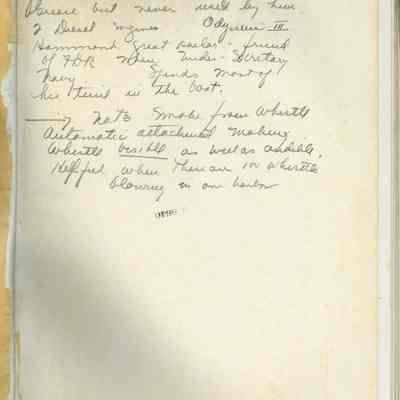 Greece but never used by him.
2 Diesel engines Odysseus III
Hammond great sailor - friend
of FDR when Under-Secretary
Navy Spends most of
his time in the boat.
→ Note smoke from whistle
Automatic attachment making
whistle visible as well as audible.
Helpful when there are 100 whistles
blowing in one harbor